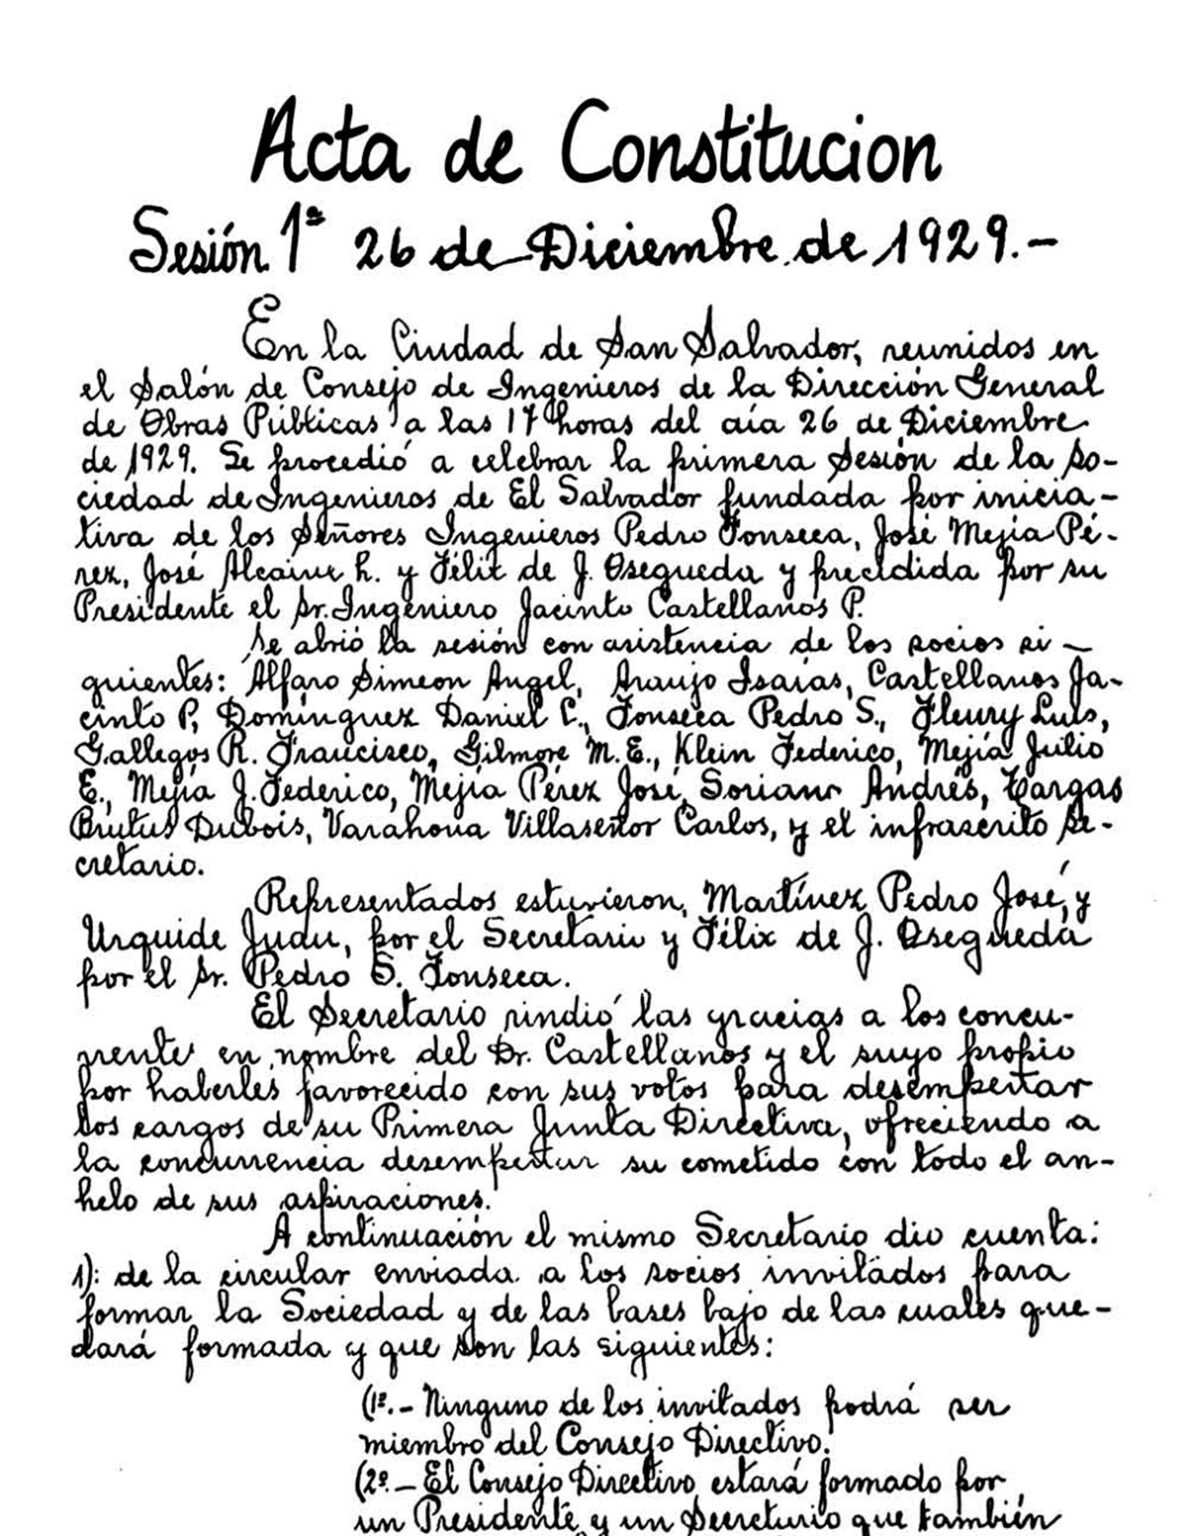 Acta de Constitucion
Sesión 1ª 26 de Diciembre de 1929.-
En la Ciudad de San Salvador, reunidos en
el Salón de Consejo de Ingenieros de la Dirección General
de Obras Públicas a las 17 horas del día 26 de Diciembre
de 1929. Se procedió a celebrar la primera Sesión de la So-
ciedad de Ingenieros de El Salvador fundada por inicia-
tiva de los Señores Ingenieros Pedro Fonseca, José Mejía Pé-
rez, José Alcaine h. y Félix de J. Osegueda y precidida por su
Presidente el Sr. Ingeniero Jacinto Castellanos P.
Se abrió la sesión con asistencia de los socios si-
guientes: Alfaro Simeon Angel, Araujo Isaías, Castellanos Ja-
cinto P, Domínguez Daniel C., Fonseca Pedro S., Fleury Luis,
Gallegos R. Francisco, Gilmore M. E., Klein Federico, Mejía Julio
E., Mejía J. Federico, Mejía Pérez José, Soriano Andrés, Vargas
Brutus Dubois, Varahona Villaseñor Carlos, y el infrascrito Se-
cretario.
Representados estuvieron, Martínez Pedro José, y
Urquide Juan, por el Secretario y Félix de J. Osegueda
por el Sr. Pedro S. Fonseca.
El Secretario rindió las gracias a los concu-
rrentes en nombre del Dr. Castellanos y el suyo propio
por haberles favorecido con sus votos para desempeñar
los cargos de su Primera Junta Directiva, ofreciendo a
la concurrencia desempeñar su cometido con todo el an-
helo de sus aspiraciones.
A continuación el mismo Secretario dio cuenta:
1): de la circular enviada a los socios invitados para
formar la Sociedad y de las bases bajo de las cuales que-
dará formada y que son las siguientes:
(1º.- Ninguno de los invitados podrá ser
miembro del Consejo Directivo.
(2º.- El Consejo Directivo estará formado por
un Presidente y un Secretario que también